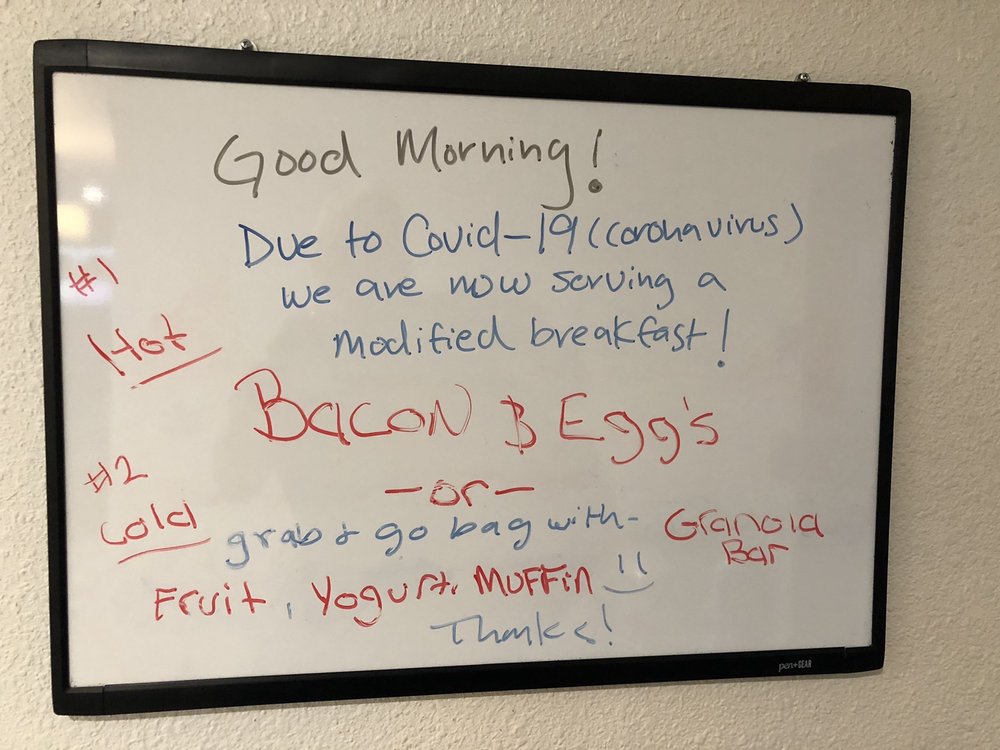 Good Morning!
Due to Covid-19 (coronavirus)
we are now serving a
modified breakfast!
#1
Hot
Bacon & Egg's
-or-
#2
Cold
grab & go bag with- Granola Bar
Fruit, Yogurt, Muffin
Thanks!
pen+GEAR